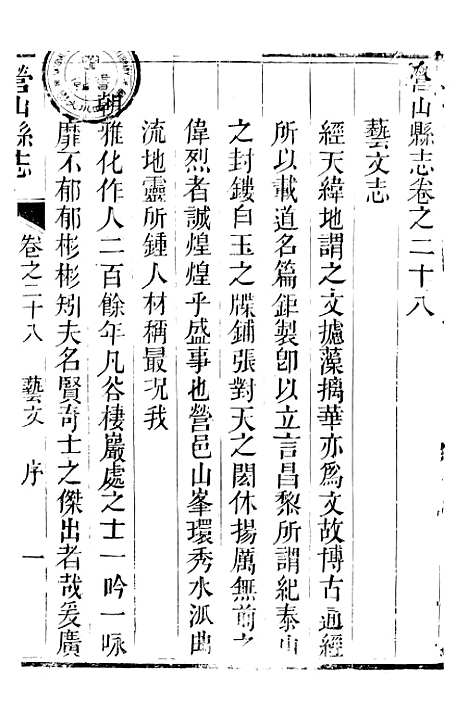 營山縣志卷之二十八
藝文志
經天緯地謂之文攄藻摛華亦爲文故博古通經
所以載道名篇鉅製卽以立言昌黎所謂紀泰山
之封鏤白玉之牒鋪張對天之閎休揚厲無前之
偉烈者誠煌煌乎盛事也營邑山峯環秀水派曲
流地靈所鍾人材稱最況我
朝雅化作人二百餘年凡谷棲巖處之士一吟一咏
靡不郁郁彬彬矧夫名賢奇士之傑出者哉爰廣
營山縣志
卷之二十八 藝文 序 一